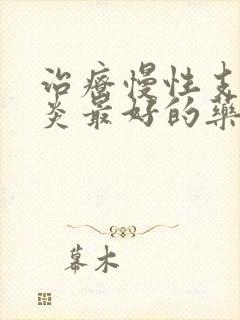 治疗慢性支
炎最好的藥
幕木